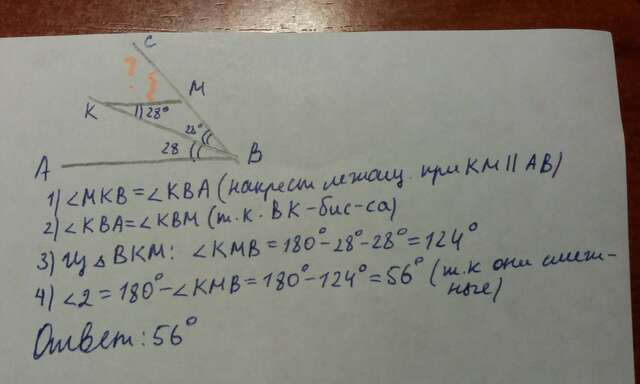 C
?
K
M
28°
28°
28
A
B
1) ∠MKB = ∠KBA (накрест лежащ. при KM || AB)
2) ∠KBA = ∠KBM (т.к. BK - бис-са)
3) Из △ BKM: ∠KMB = 180° - 28° - 28° = 124°
4) ∠2 = 180° - ∠KMB = 180° - 124° = 56° (т.к они смеж-
ные)
Ответ: 56°